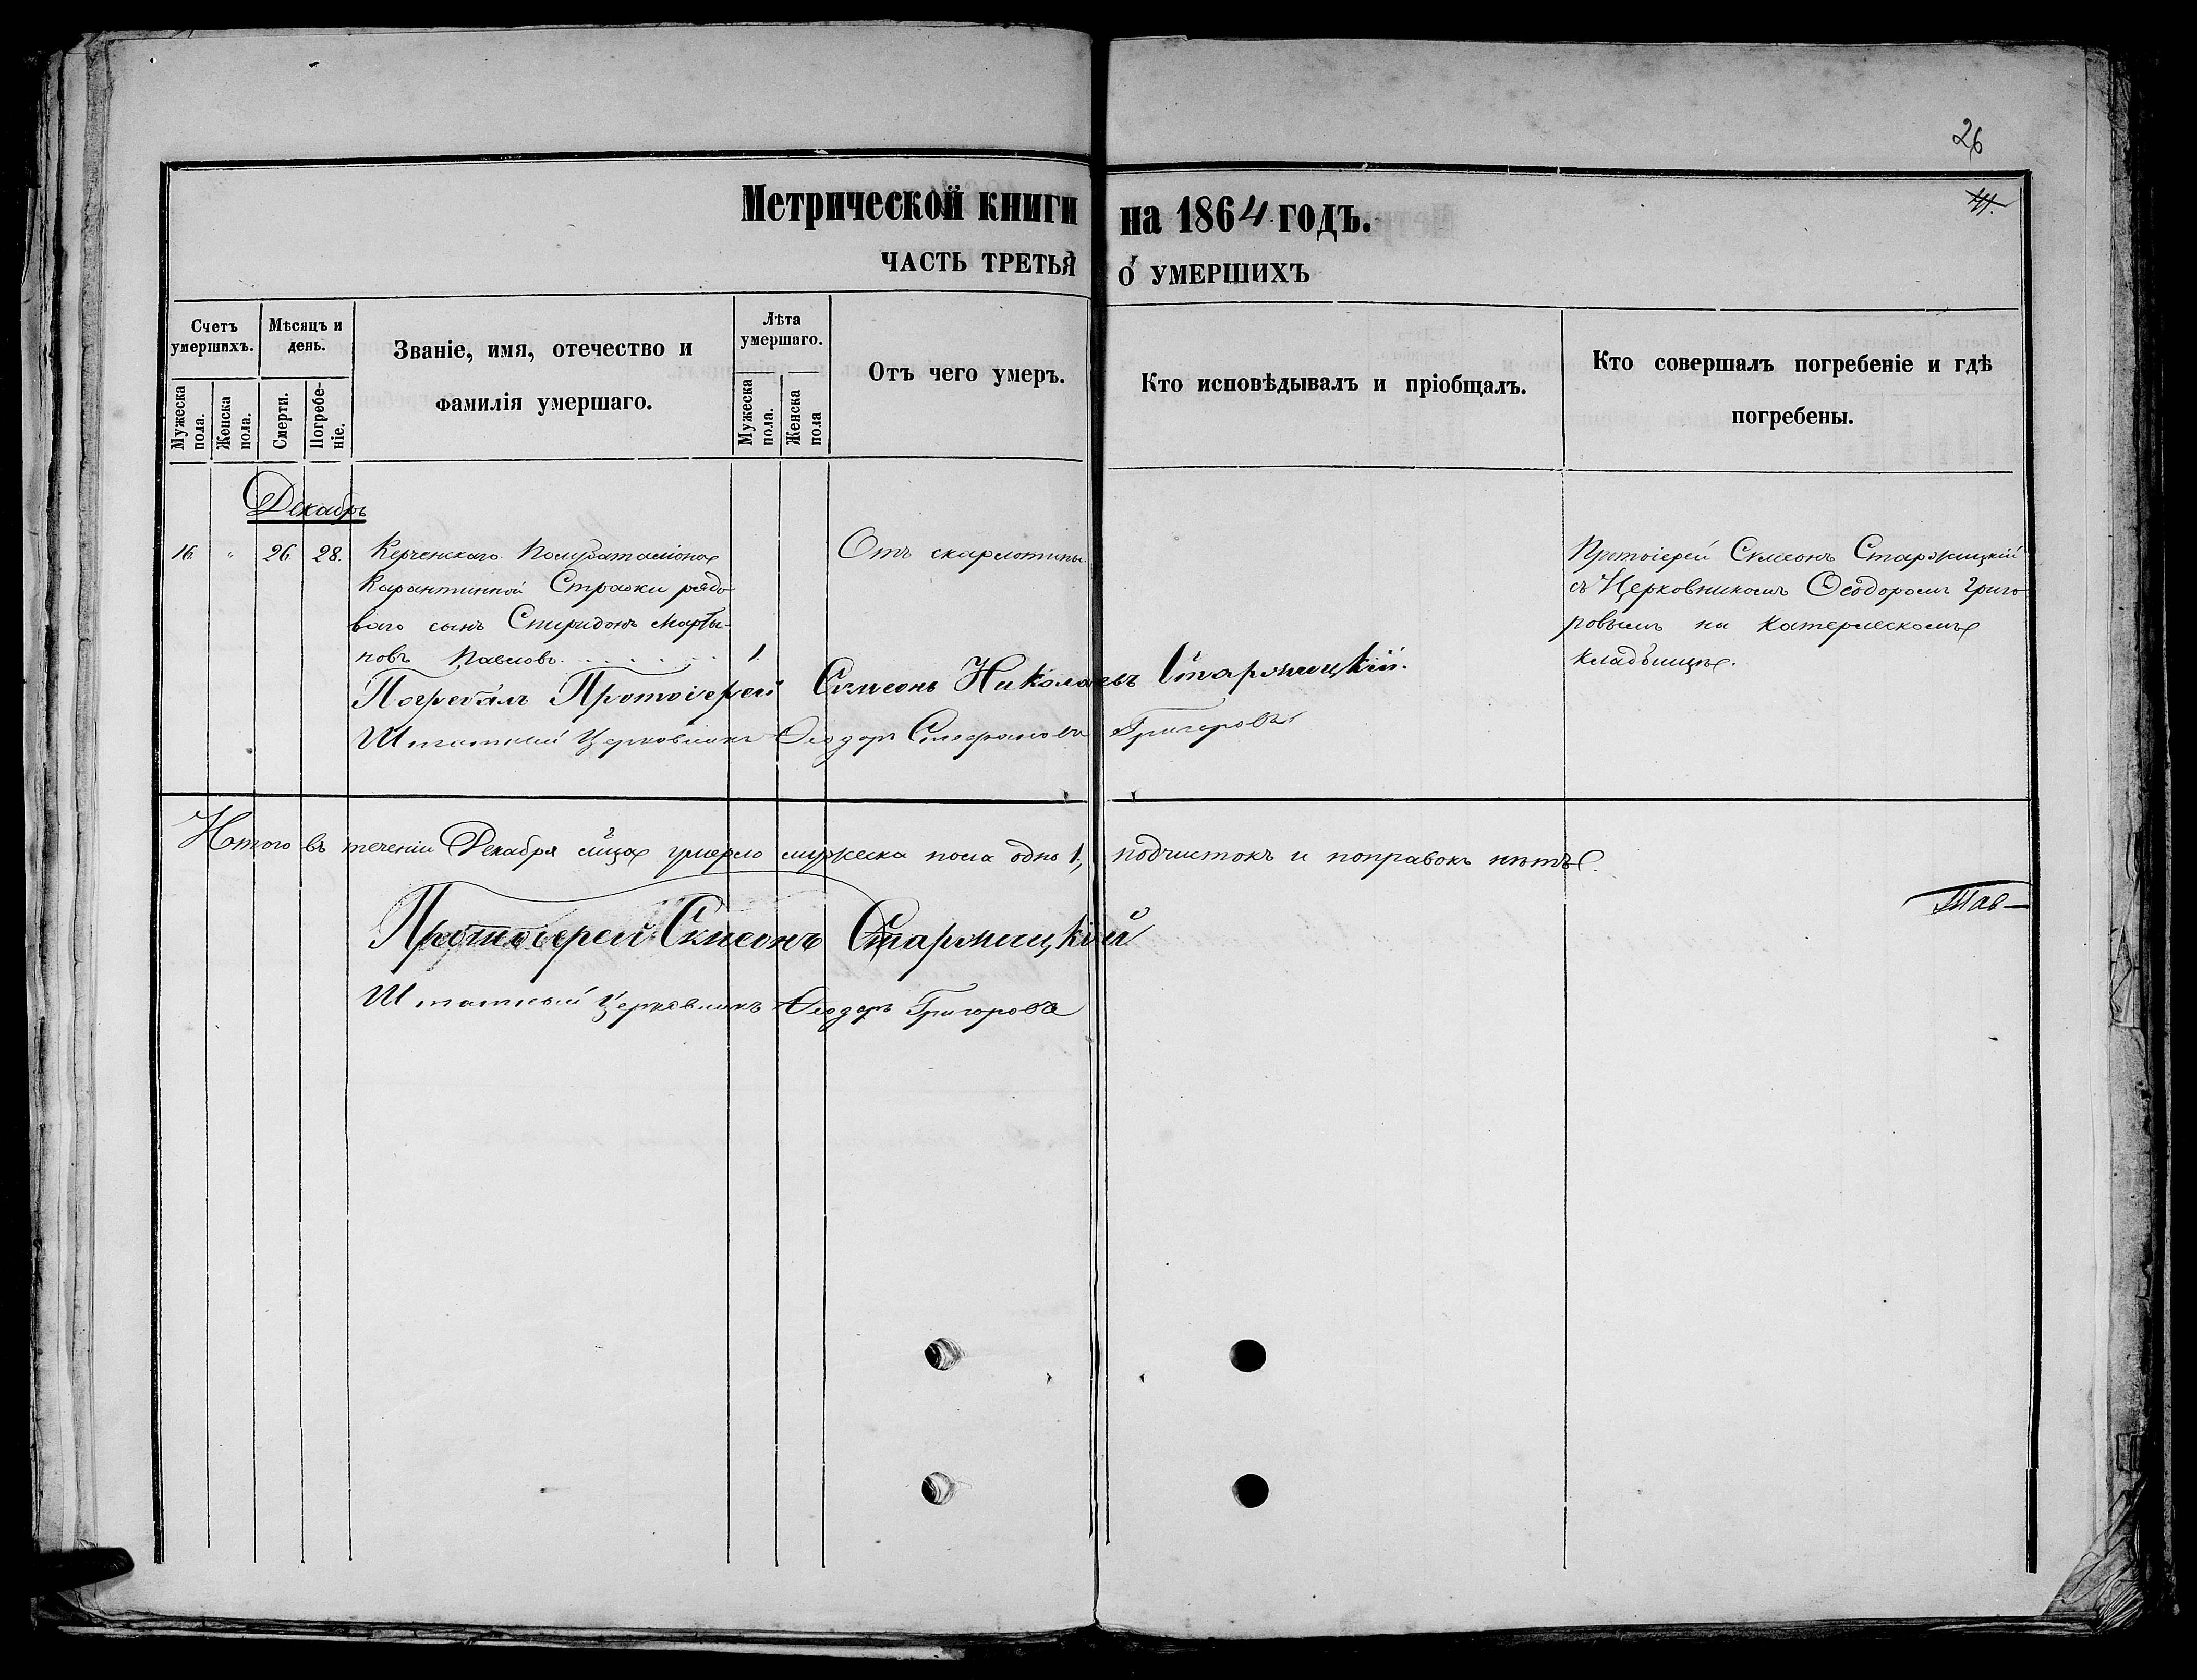 26
Метрической книги на 1864 годъ.
ЧАСТЬ ТРЕТЬЯ О УМЕРШИХЪ
Счетъ умершихъ.
Мѣсяцъ и день.
Званіе, имя, отечество и фамилія умершаго.
Лѣта умершаго.
Отъ чего умеръ.
Кто исповѣдывалъ и пріобщалъ.
Кто совершалъ погребеніе и гдѣ погребены.
Мужеска пола.
Женска пола.
Смерти.
Погребе-ніе.
Мужеска пола.
Женска пола
Декабрь
16. " 26 28. Керченскаго Полубаталіона Отъ скарлотины. Протоіерей Симеонъ Старжицкій
Карантинной Стражи рядо- съ Церковникомъ Ѳеодоромъ Григо-
ваго сынъ Спиридонъ Марты- ровымъ на Катерлескомъ
новъ Павловъ. 1. кладбищѣ.
Погребалъ Протоіерей Симеонъ Николаевъ Старжицкій.
Штатный Церковникъ Ѳеодоръ Григоровъ
Итого въ теченіи Декабря мца умерло мужеска пола одно 1, подчистокъ и поправокъ нѣтъ.
Тав-
Протоіерей Симеонъ Старжицкій
Штатный Церковникъ Ѳеодоръ Григоровъ